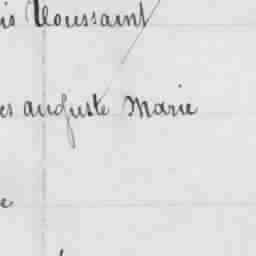 is Toussaint
es auguste Marie
e